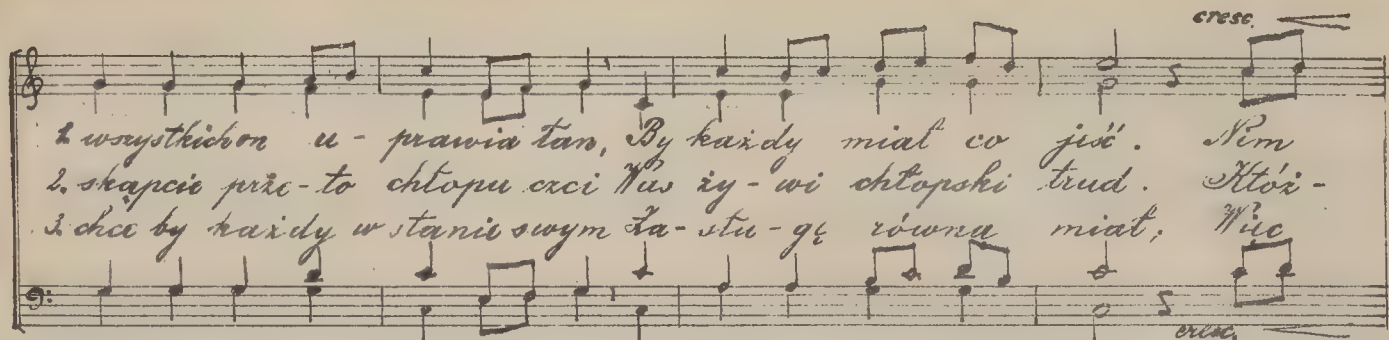 cresc.
1. wszystkich on u - prawia łan, By każdy miał co jiść. Nim
2. skąpcie prze - to chłopu czci Was ży - wi chłopski trud. Któż -
3. chce by każdy w stanie swym Za - słu - gę równa miał; Więc
cresc.